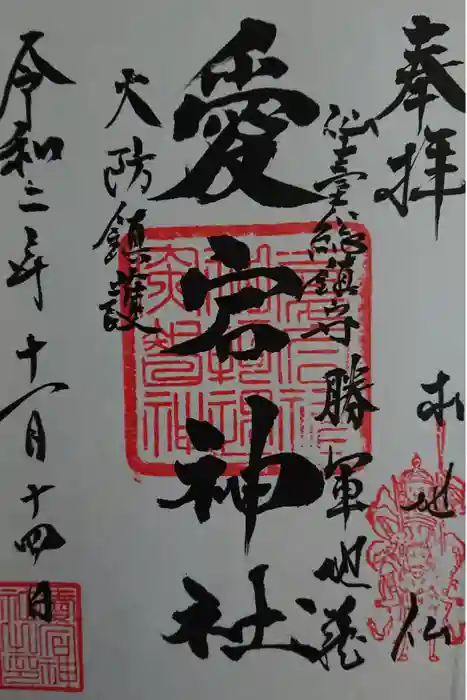 奉拝
本地仏
仙臺総鎮守勝軍地蔵
愛宕神社
火防鎮護
令和二年十一月十四日